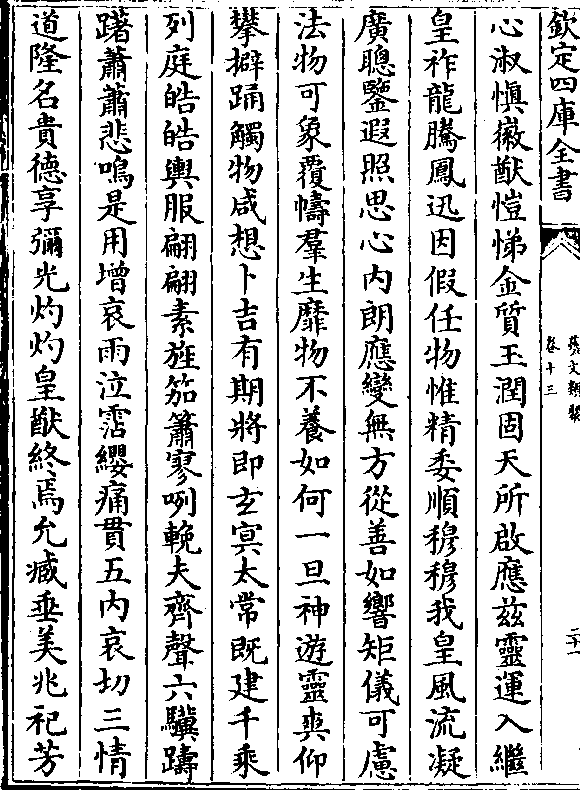 欽定四庫全書
藝文類聚
卷十三
二十一
心淑慎徽猷愷悌金質玉潤固天所啟應兹靈運入繼
皇祚龍騰鳳迅因假任物惟精委順穆穆我皇風流凝
廣聰鑒遐照思心内朗應變無方從善如響矩儀可慮
法物可象覆幬羣生靡物不養如何一旦神遊靈爽仰
攀擗踊觸物咸想卜吉有期將即玄冥太常既建千乘
列庭皓皓輿服翩翩素旌笳簫寥唳輓夫齊聲六驥躊
躇蕭蕭悲鳴是用增哀雨泣霑纓痛貫五内哀切三情
道隆名貴德享彌光灼灼皇猷終焉允臧垂美兆祀芳